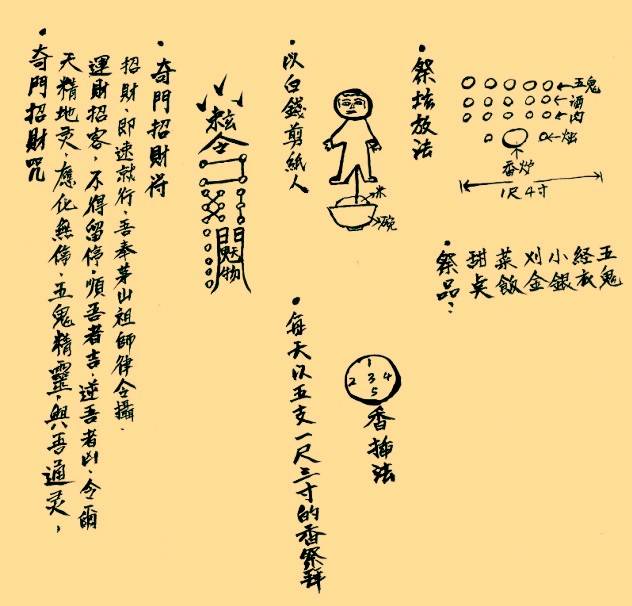 ・奇門招財咒
天精地灵，應化無停，五鬼精靈，與吾通灵，
運財招客，不得留停，順吾者吉，逆吾者凶，令爾
招財，即速就行，吾奉茅山祖師律令攝．
・奇門招財符
令
・以白錢剪紙人
米
碗
・每天以五支一尺三寸的香祭拜
1
2 3 4
5
香插法
・祭坛放法
五鬼
酒
肉
烛
香炉
1尺4寸
・祭品：
甜点
菜飯
刈金
小銀
経衣
五鬼